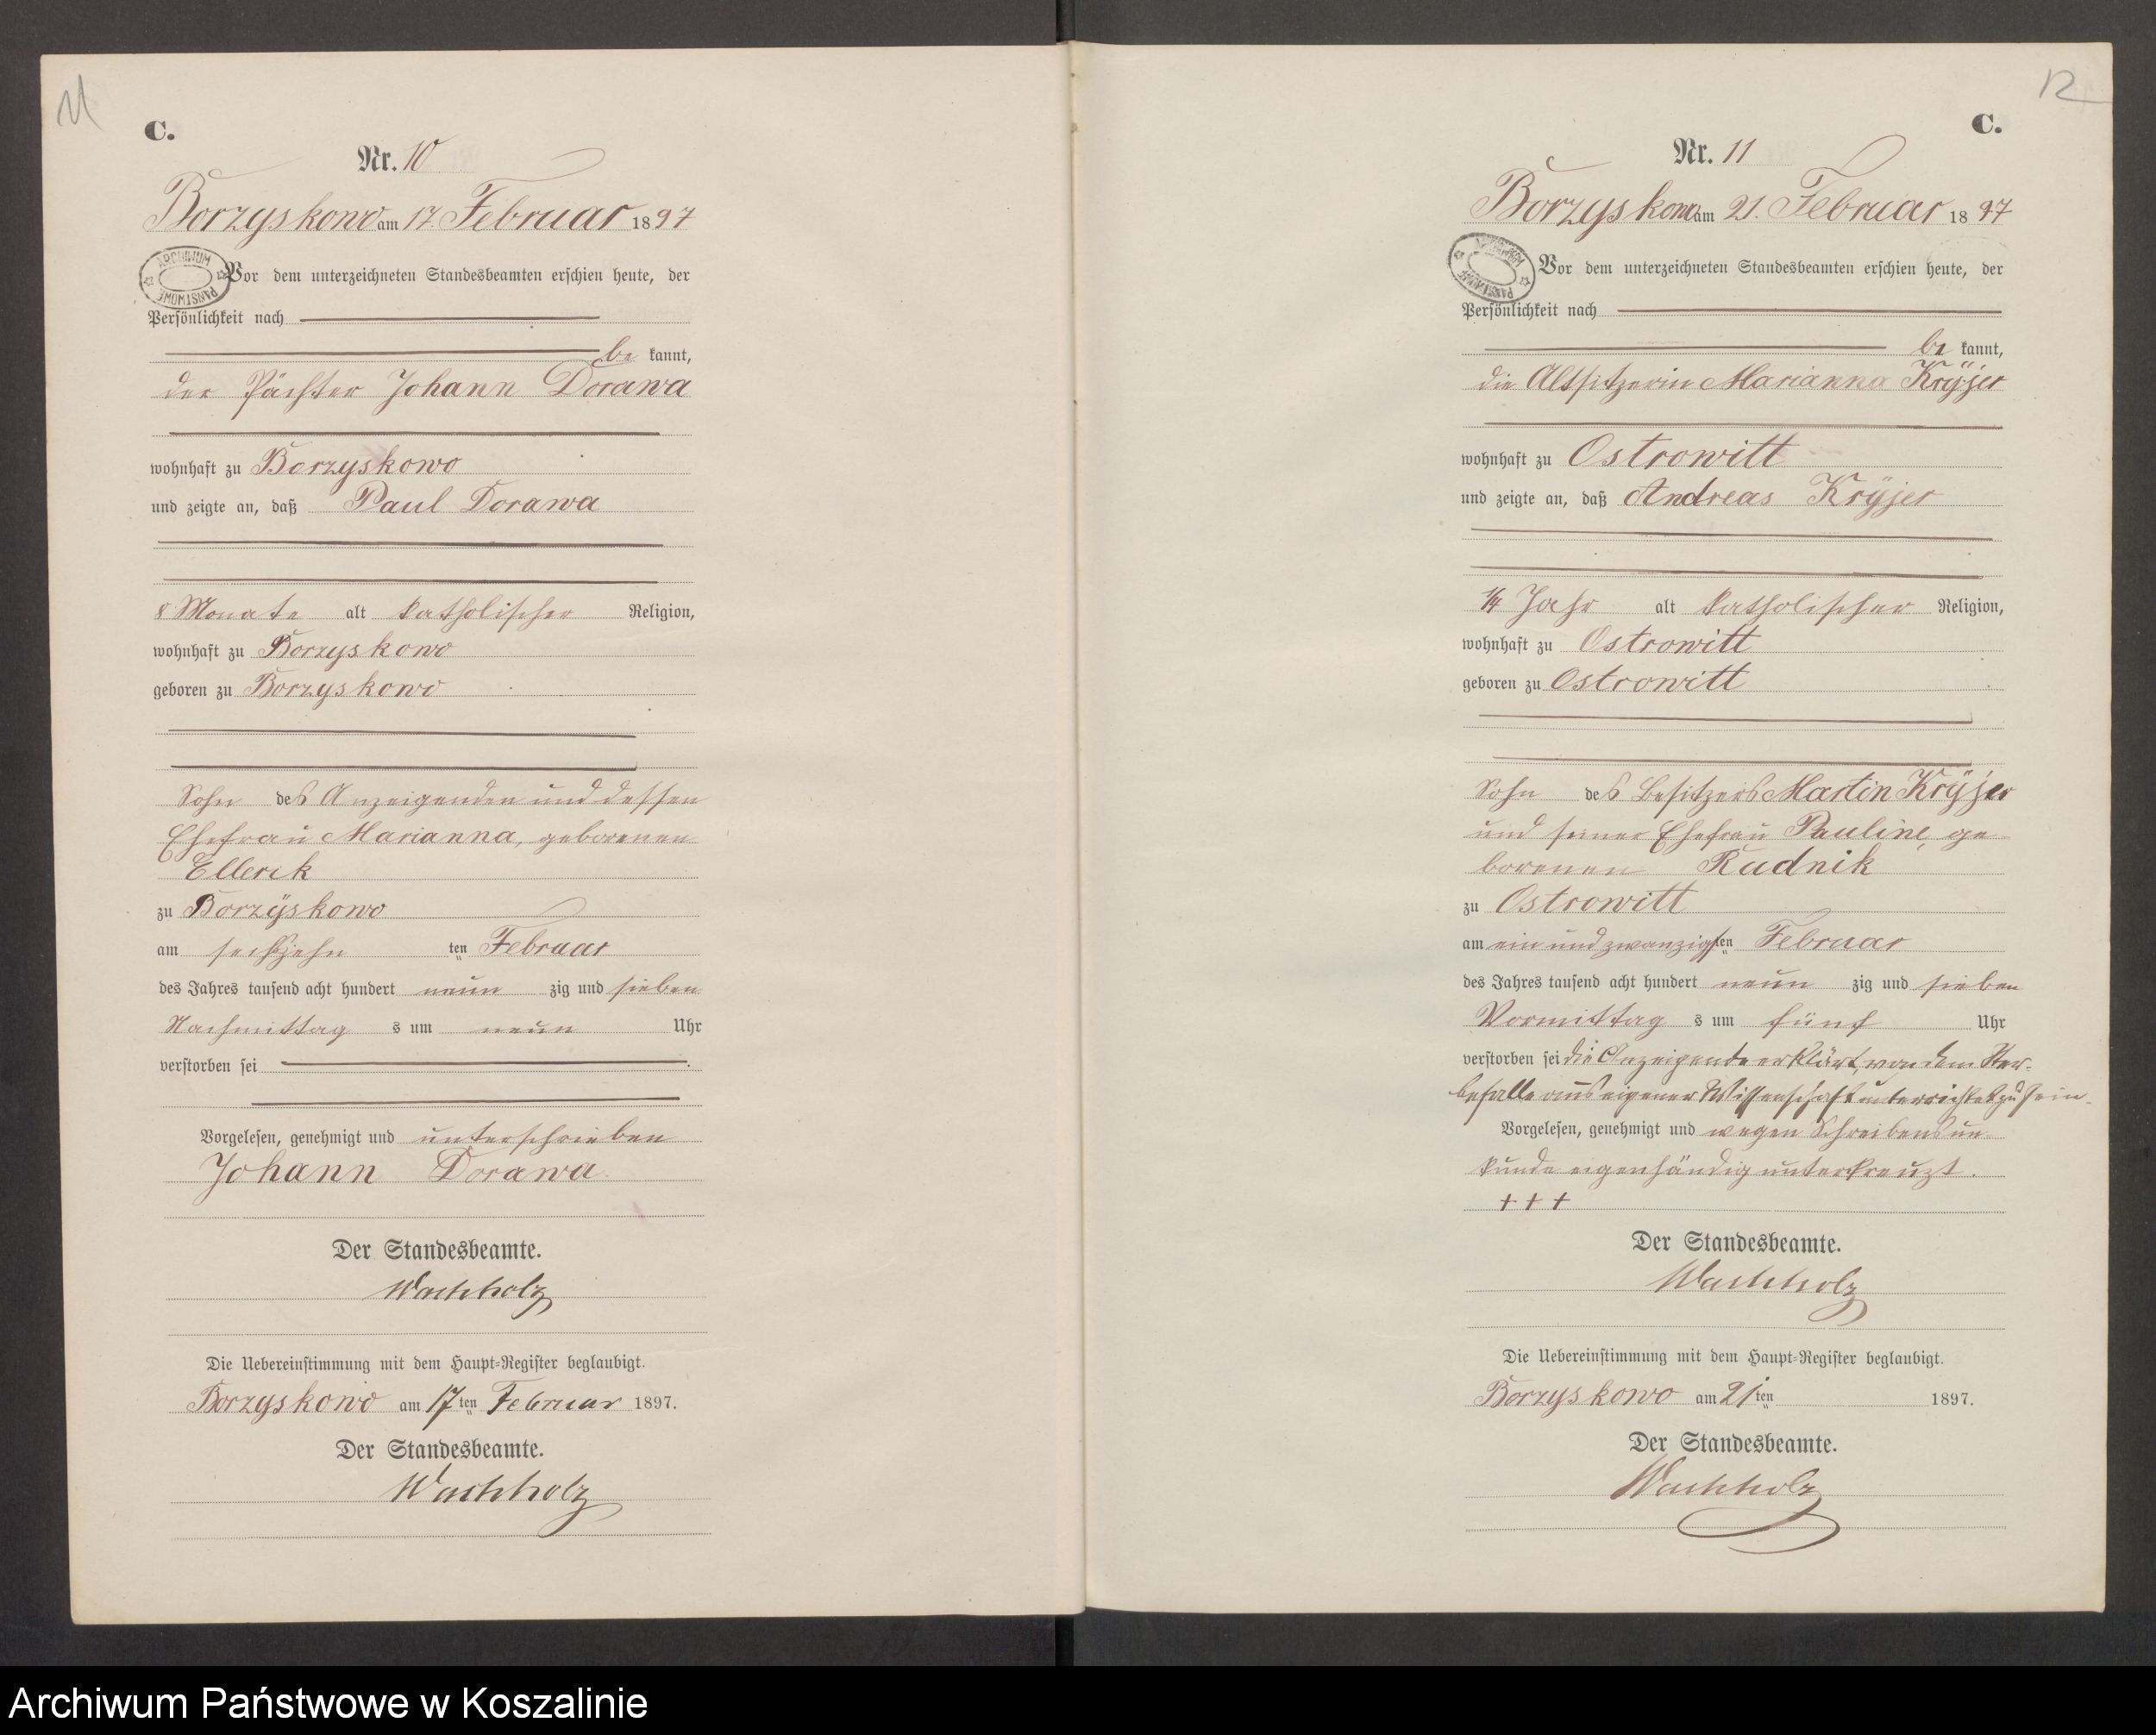 11
C.
Nr. 10
Borzyskowo am 17. Februar 1897
ARCHIWUM PAŃSTWOWE
Vor dem unterzeichneten Standesbeamten erschien heute, der
Persönlichkeit nach
be kannt,
der Pächter Johann Dorawa
wohnhaft zu Borzyskowo
und zeigte an, daß Paul Dorawa
8 Monate alt katholischer Religion,
wohnhaft zu Borzyskowo
geboren zu Borzyskowo
Sohn des Anzeigenden und dessen
Ehefrau Marianna, geborenen
Ellerik
zu Borzÿskowo
am sechszehn ten Februar
des Jahres tausend acht hundert neun zig und sieben
Nachmittag s um neun Uhr
verstorben sei
Vorgelesen, genehmigt und unterschrieben
Johann Dorawa
Der Standesbeamte.
Wachholz
Die Uebereinstimmung mit dem Haupt-Register beglaubigt.
Borzyskowo am 17ten Februar 1897.
Der Standesbeamte.
Wachholz
12
C.
Nr. 11
Borzyskowo am 21. Februar 1897
ARCHIWUM PAŃSTWOWE
Vor dem unterzeichneten Standesbeamten erschien heute, der
Persönlichkeit nach
be kannt,
die Altsitzerin Marianna Krÿjer
wohnhaft zu Ostrowitt
und zeigte an, daß Andreas Krÿjer
1/4 Jahr alt katholischer Religion,
wohnhaft zu Ostrowitt
geboren zu Ostrowitt
Sohn des Besitzers Martin Krÿjer
und seiner Ehefrau Pauline, ge
borenen Rudnik
zu Ostrowitt
am ein und zwanzigsten Februar
des Jahres tausend acht hundert neun zig und sieben
Vormittag s um fünf Uhr
verstorben sei die Anzeigende erklärt, von dem Ster-
befalle aus eigener Wissenschaft unterrichtet zu sein.
Vorgelesen, genehmigt und wegen Schreibensun
kunde eigenhändig unterkreuzt.
+ + +
Der Standesbeamte.
Wachholz
Die Uebereinstimmung mit dem Haupt-Register beglaubigt.
Borzyskowo am 21ten 1897.
Der Standesbeamte.
Wachholz
Archiwum Państwowe w Koszalinie